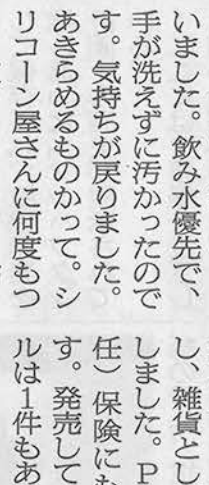 いました。飲み水優先で、
手が洗えずに汚かったので
す。気持ちが戻りました。
あきらめるものかって。シ
リコーン屋さんに何度もつ
し、雑貨とし
しました。P
任）保険にも
す。発売して
ルは1件もあ